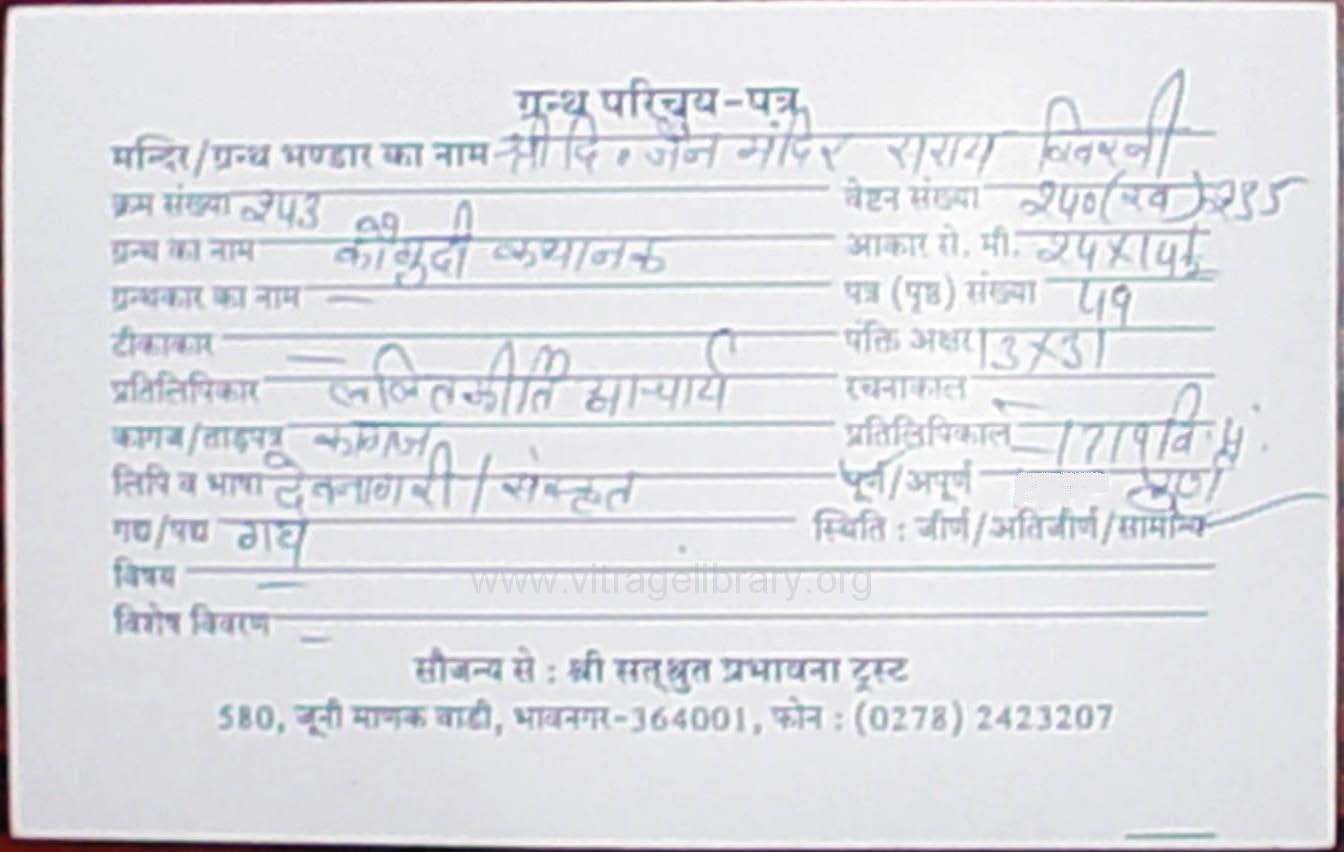 ग्रन्थ परिचय-पत्र
मन्दिर/ग्रन्थ भण्डार का नाम श्री दि. जैन मंदिर सराय
क्रम संख्या २५३ वेष्टन संख्या २५०(ख)
ग्रन्थ का नाम कौमुदी कथानक आकार से. मी.
ग्रन्थकार का नाम — पत्र (पृष्ठ) संख्या ५१
टीकाकार — पंक्ति अक्षर 13X31
प्रतिलिपिकार ललितकीर्ति आचार्य रचनाकाल —
कागज/ताड़पत्र कागज प्रतिलिपिकाल
लिपि व भाषा देवनागरी/संस्कृत पूर्ण/अपूर्ण पूर्ण
गद्य/पद्य गद्य स्थिति : जीर्ण/अतिजीर्ण/सामान्य
विषय —
www.vitragelibrary.org
विशेष विवरण —
सौजन्य से : श्री सत्श्रुत प्रभावना ट्रस्ट
580, जूनी माणक वाडी, भावनगर-364001, फोन : (0278) 2423207